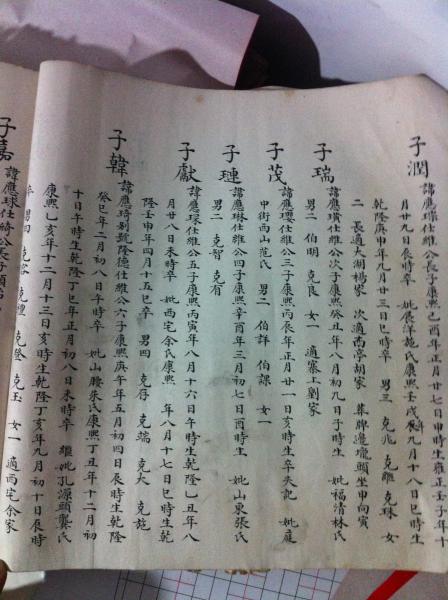 子潤
諱應璿仕維公長子康熙己酉年
月廿九日辰時卒 妣展洋施氏康熙壬戌年九月十八日巳時生
乾隆庚申年九月廿三日巳時卒 男三 克兆 克離 克珠 女
二 長適大湖楊家 次適西亭胡家 葬牌邊壠頭坐申向寅
子瑞
諱應璜仕維公次子康熙癸丑年八月初九日子時生 妣福清林氏
男二 伯明 克良 女一 適寨上劉家
子茂
諱應瓔仕維公三子康熙丙辰年正月廿一日亥時生卒失記 妣庭
中街西山范氏 男二 伯詳 伯謀 女一
子璉
諱應琳仕維公四子康熙辛酉年三月初七日酉時生 妣山東張氏
男二 克智 克有
子獻
諱應球仕維公五子康熙丙寅年八月十六日午時生乾隆乙丑年八
月廿八日未時卒 妣西宅余氏康熙 年八月十七日巳時生乾
隆壬申年四月十五巳卒 男四 克存 克端 克大 克詑
子韓
諱應琦别號隆德仕維公六子康熙庚午年五月初四日辰時生乾隆
癸巳年二月初八日午時卒 妣山腰朱氏康熙丁丑年十二月初
十日午時生乾隆丁巳年正月初八日未時卒 繼妣孔源頭龔氏
康熙乙亥年十二月十三日亥時生乾隆丁亥年九月初十日辰時
卒 男四 克容 克禮 克登 克玉 女一 適西宅余家
子嘉
諱應球仕綺公長子